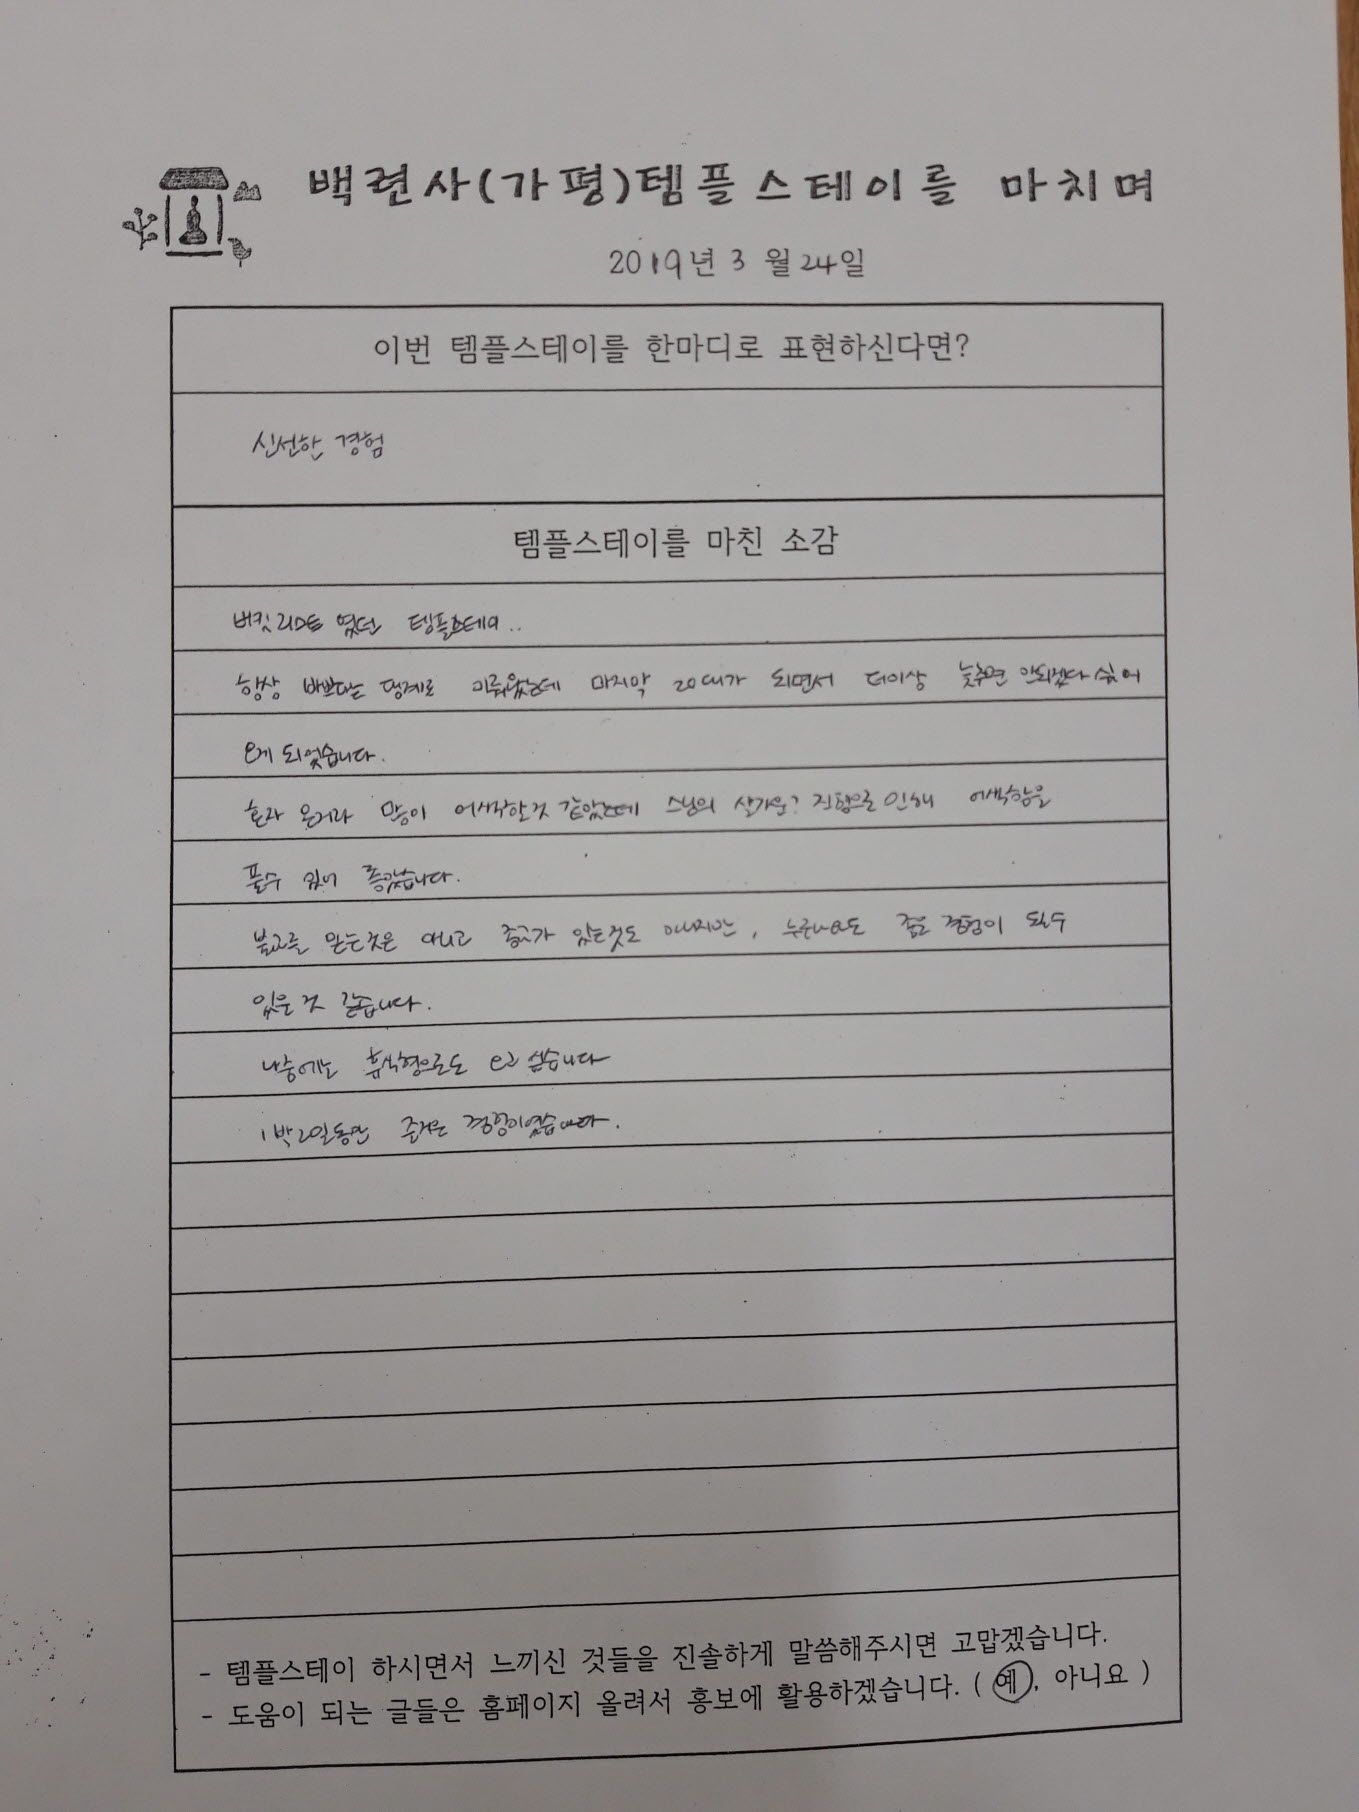 백련사(가평)템플스테이를 마치며
2019년 3월 24일
이번 템플스테이를 한마디로 표현하신다면?
신선한 경험
템플스테이를 마친 소감
버킷리스트 였던 템플스테이..
항상 바쁘다는 핑계로 미뤄왔는데 마지막 20대가 되면서 더이상 늦추면 안되겠다 싶어
오게 되었습니다.
혼자 온거라 많이 어색할것 같았는데 스님의 살가운? 진행으로 인해 어색함을
풀수 있어 좋았습니다.
불교를 믿는것은 아니고 종교가 있는것도 아니지만, 누구나에도 좋은 경험이 될수
있을 것 같습니다.
나중에는 휴식형으로도 오고 싶습니다
1박2일동안 즐거운 경험이였습니다.
- 템플스테이 하시면서 느끼신 것들을 진솔하게 말씀해주시면 고맙겠습니다.
- 도움이 되는 글들은 홈페이지 올려서 홍보에 활용하겠습니다. ( 예, 아니요 )